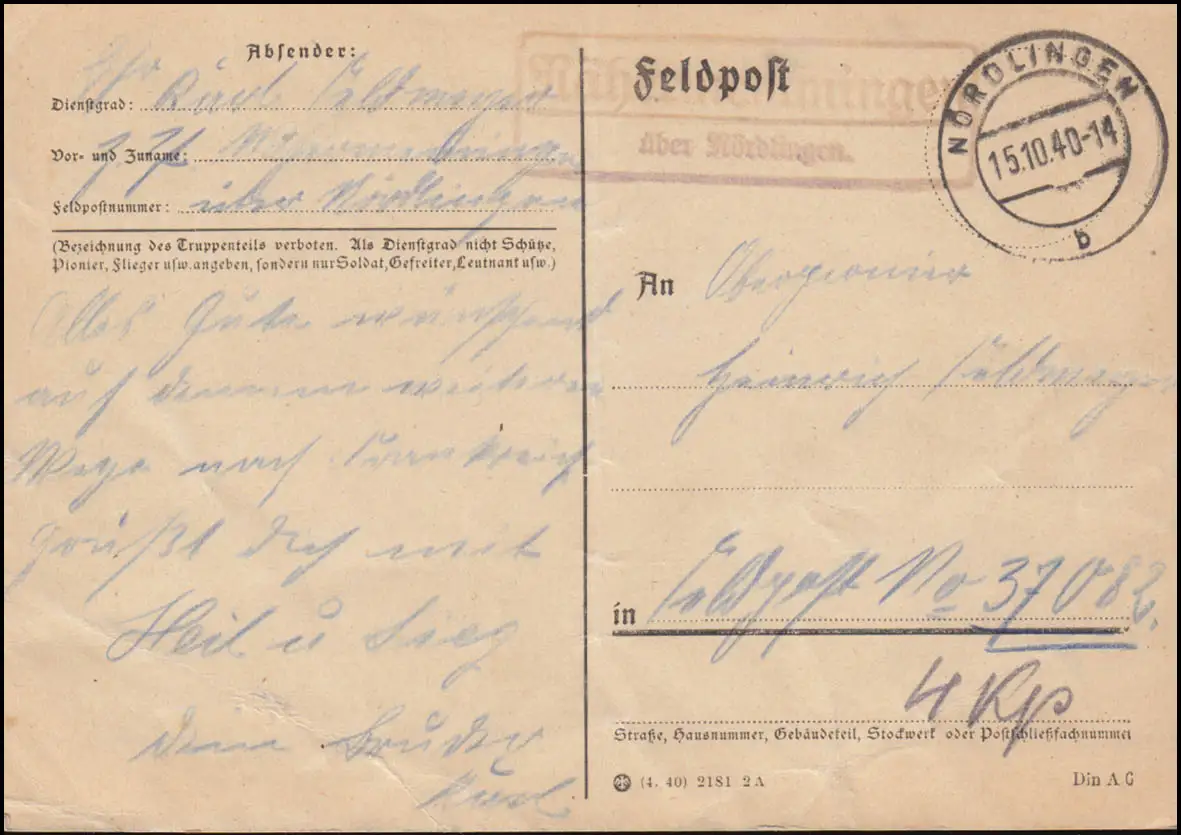 Absender:
Dienstgrad: Karl Feldmeyer
Vor- und Zuname: z. Zt. Nähermemmingen
Feldpostnummer: über Nördlingen
(Bezeichnung des Truppenteils verboten. Als Dienstgrad nicht Schütze,
Pionier, Flieger usw. angeben, sondern nur Soldat, Gefreiter, Leutnant usw.)
Alles Gute wünschend
auf deinem weiteren
Wege nach Frankreich
grüßt dich mit
Heil u Sieg
dein Bruder
Karl
Feldpost
Nähermemmingen
über Nördlingen.
NÖRDLINGEN
15.10.40-14
b
An Oberpionier
Heinrich Feldmeyer
in Feldpost No 37082.
4 Kp
Straße, Hausnummer, Gebäudeteil, Stockwerk oder Postschließfachnummer
(4. 40) 2181 2A
Din A 6